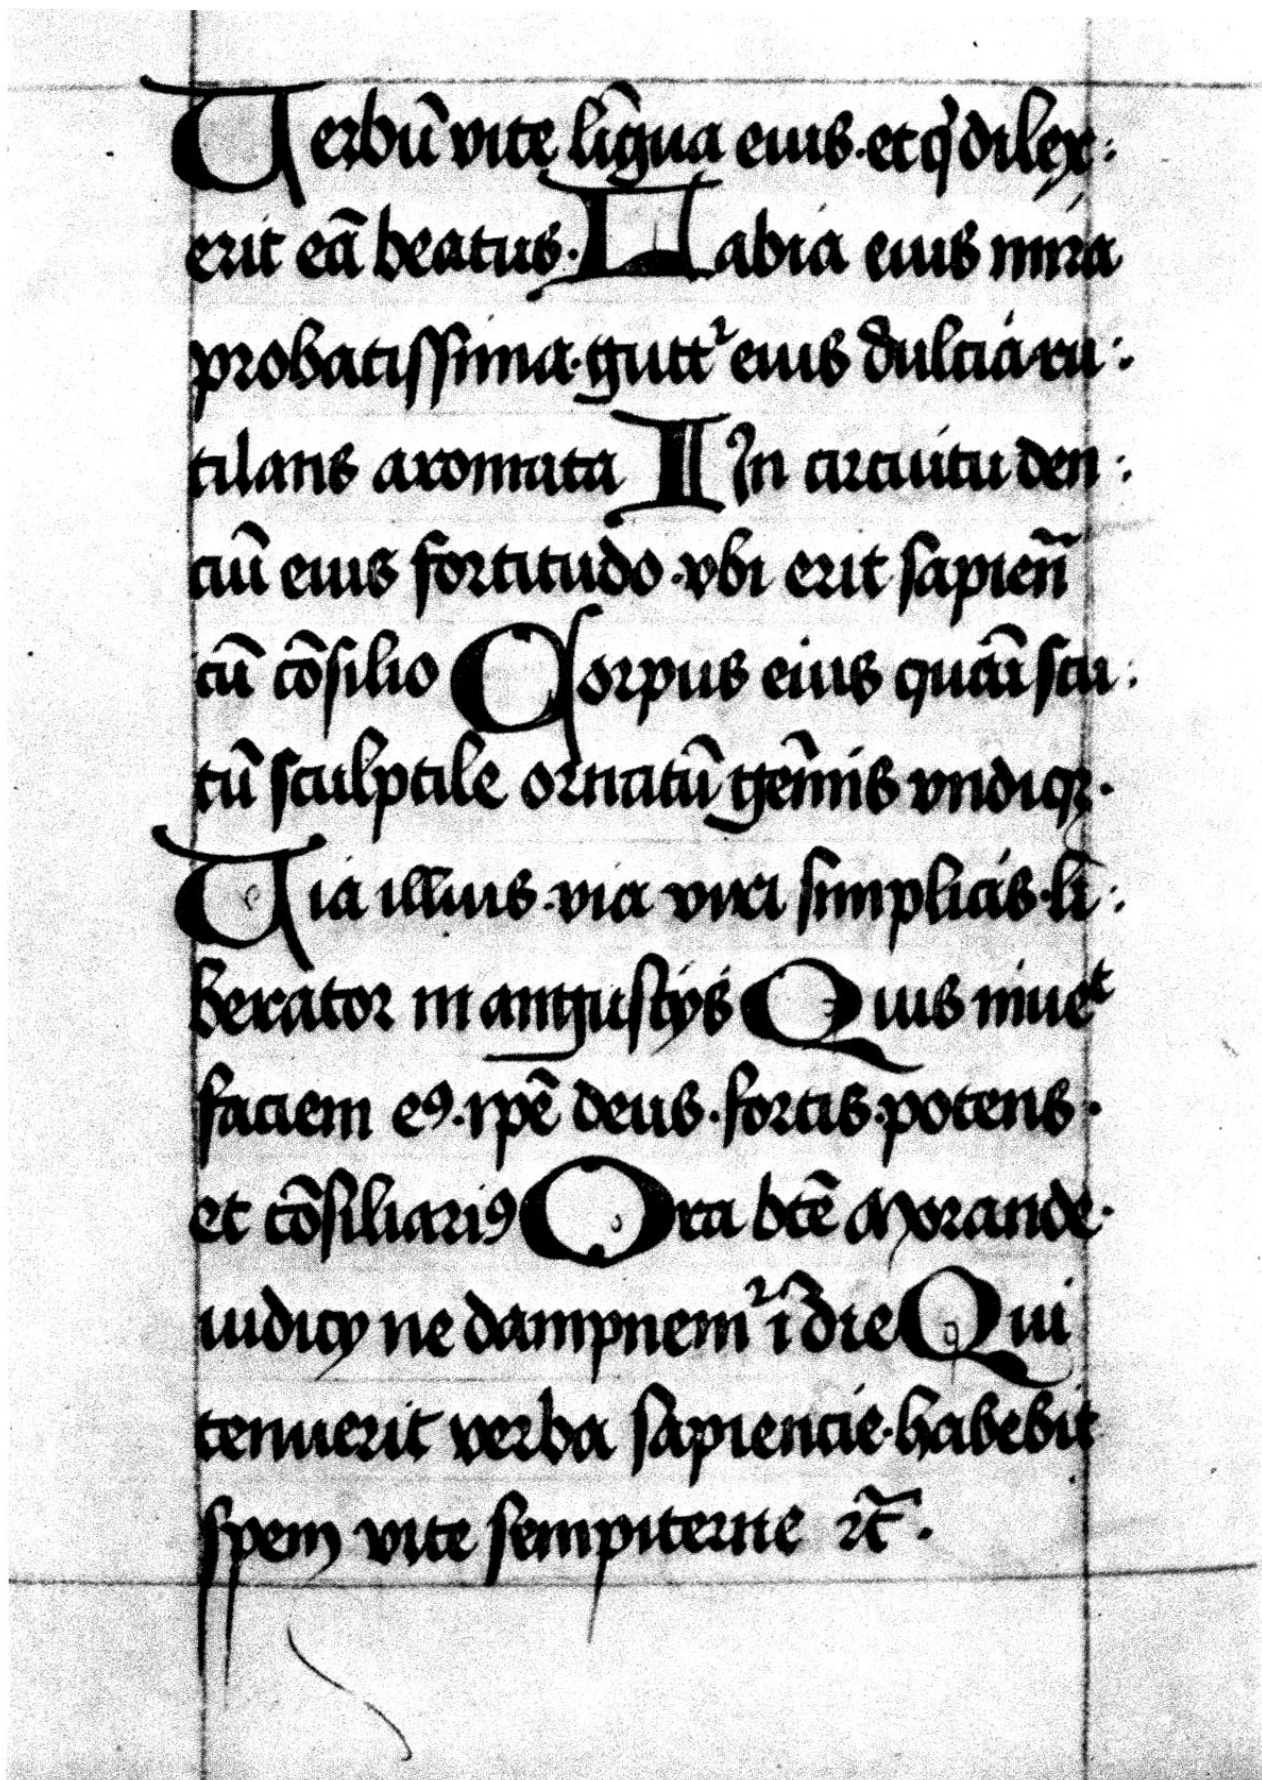 Uerbū vitę līgua eius. et q̇ dilex:
erit eā beatus. Labia eius mira
probatissima. gutt᷑ eius dulcia ru:.
tilans aromata I In circuitu den:
ciū eius fortitudo. vbi erit sapien̄
cū cōsilio Corpus eius quasi scu:
tū sculptile ornatū gēmis vndiqꝫ.
Uia illius. via viri simplicis. li:
berator in angustijs Quis inueᵗ
faciem eꝯ. ip̄e deus. fortis. potens.
et cōsiliariꝯ Ora bt̄e Morande.
iudicij ne dampnem᷑ ī die Qui
tenuerit verba sapiencie. habebit
spem vite sempiterne ⁊c̄.